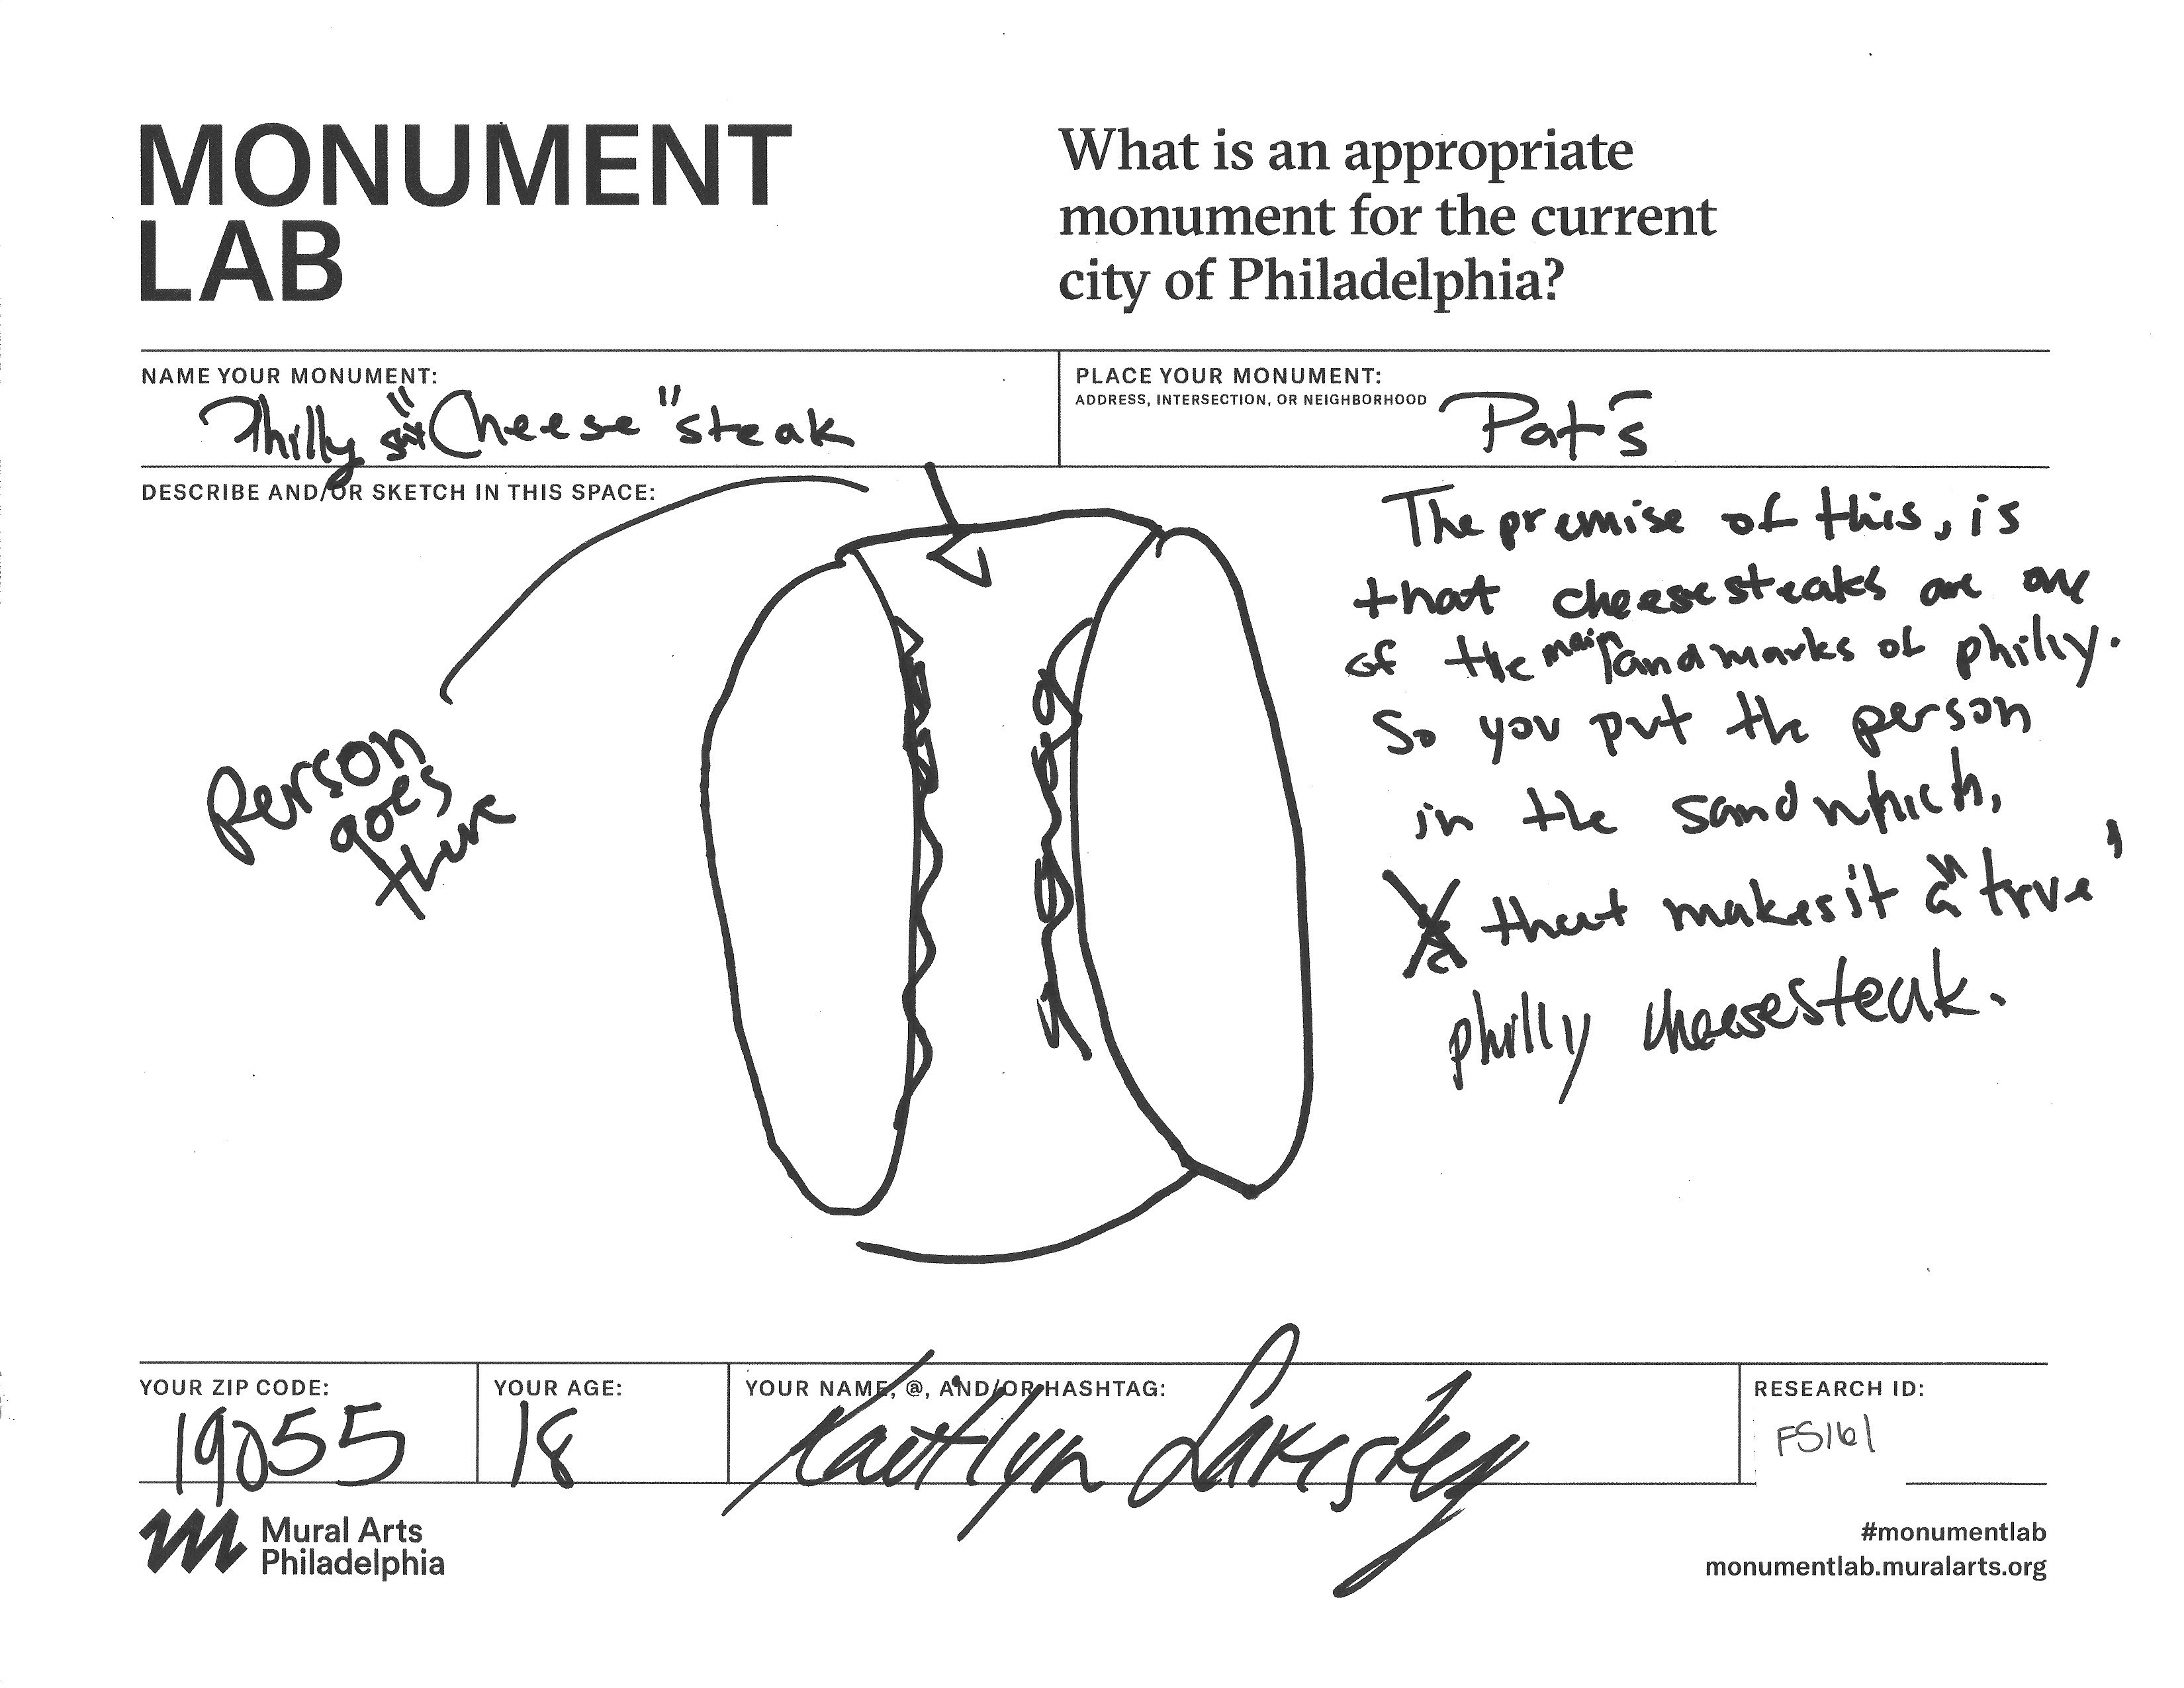 MONUMENT
LAB
What is an appropriate
monument for the current
city of Philadelphia?
NAME YOUR MONUMENT:
Philly "Cheese" steak
PLACE YOUR MONUMENT:
ADDRESS, INTERSECTION, OR NEIGHBORHOOD
Pat's
DESCRIBE AND/OR SKETCH IN THIS SPACE:
Person
goes
there
The premise of this, is
that cheesesteaks are one
of the main landmarks of philly.
So you put the person
in the sandwhich,
that makes it a "true"
philly cheesesteak.
YOUR ZIP CODE:
19055
YOUR AGE:
18
YOUR NAME, @, AND/OR HASHTAG:
Kaitlyn
RESEARCH ID:
FS161
Mural Arts
Philadelphia
#monumentlab
monumentlab.muralarts.org